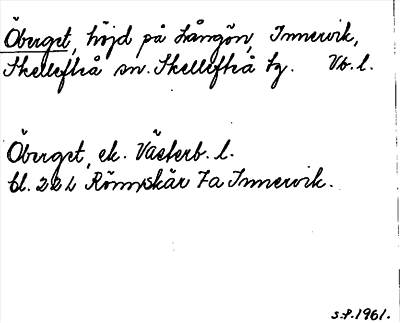 Öberget, höjd på Långön, Innervik,
Skellefteå sn. Skellefteå tg. Vb. l.
Öberget, ek. Västerb. l.
bl. 22L Rönnskär 7a Innervik.
s.P. 1961.